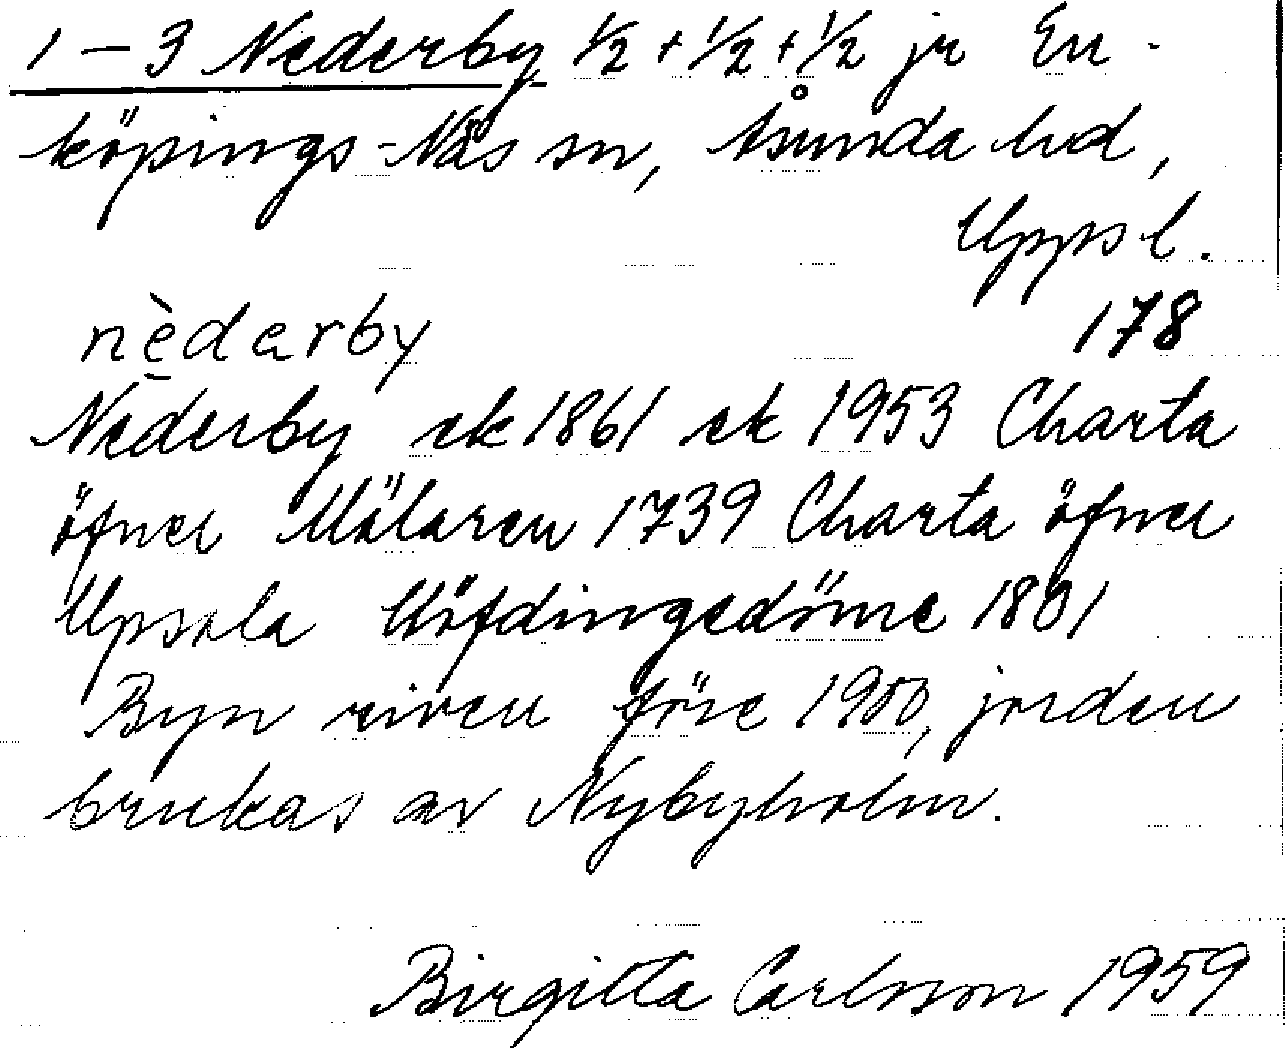 1–3 Nederby 1/2 + 1/2 + 1/2 jr En-
köpings-Näs sn, Åsunda hd,
Uppsl.
178
nèdarby
Nederby ek 1861 ek 1953 Charta
öfver Mälaren 1739 Charta öfver
Upsala Höfdingedöme 1801
Byn riven före 1900, jorden
brukas av Nybyholm.
Birgitta Carlsson 1959